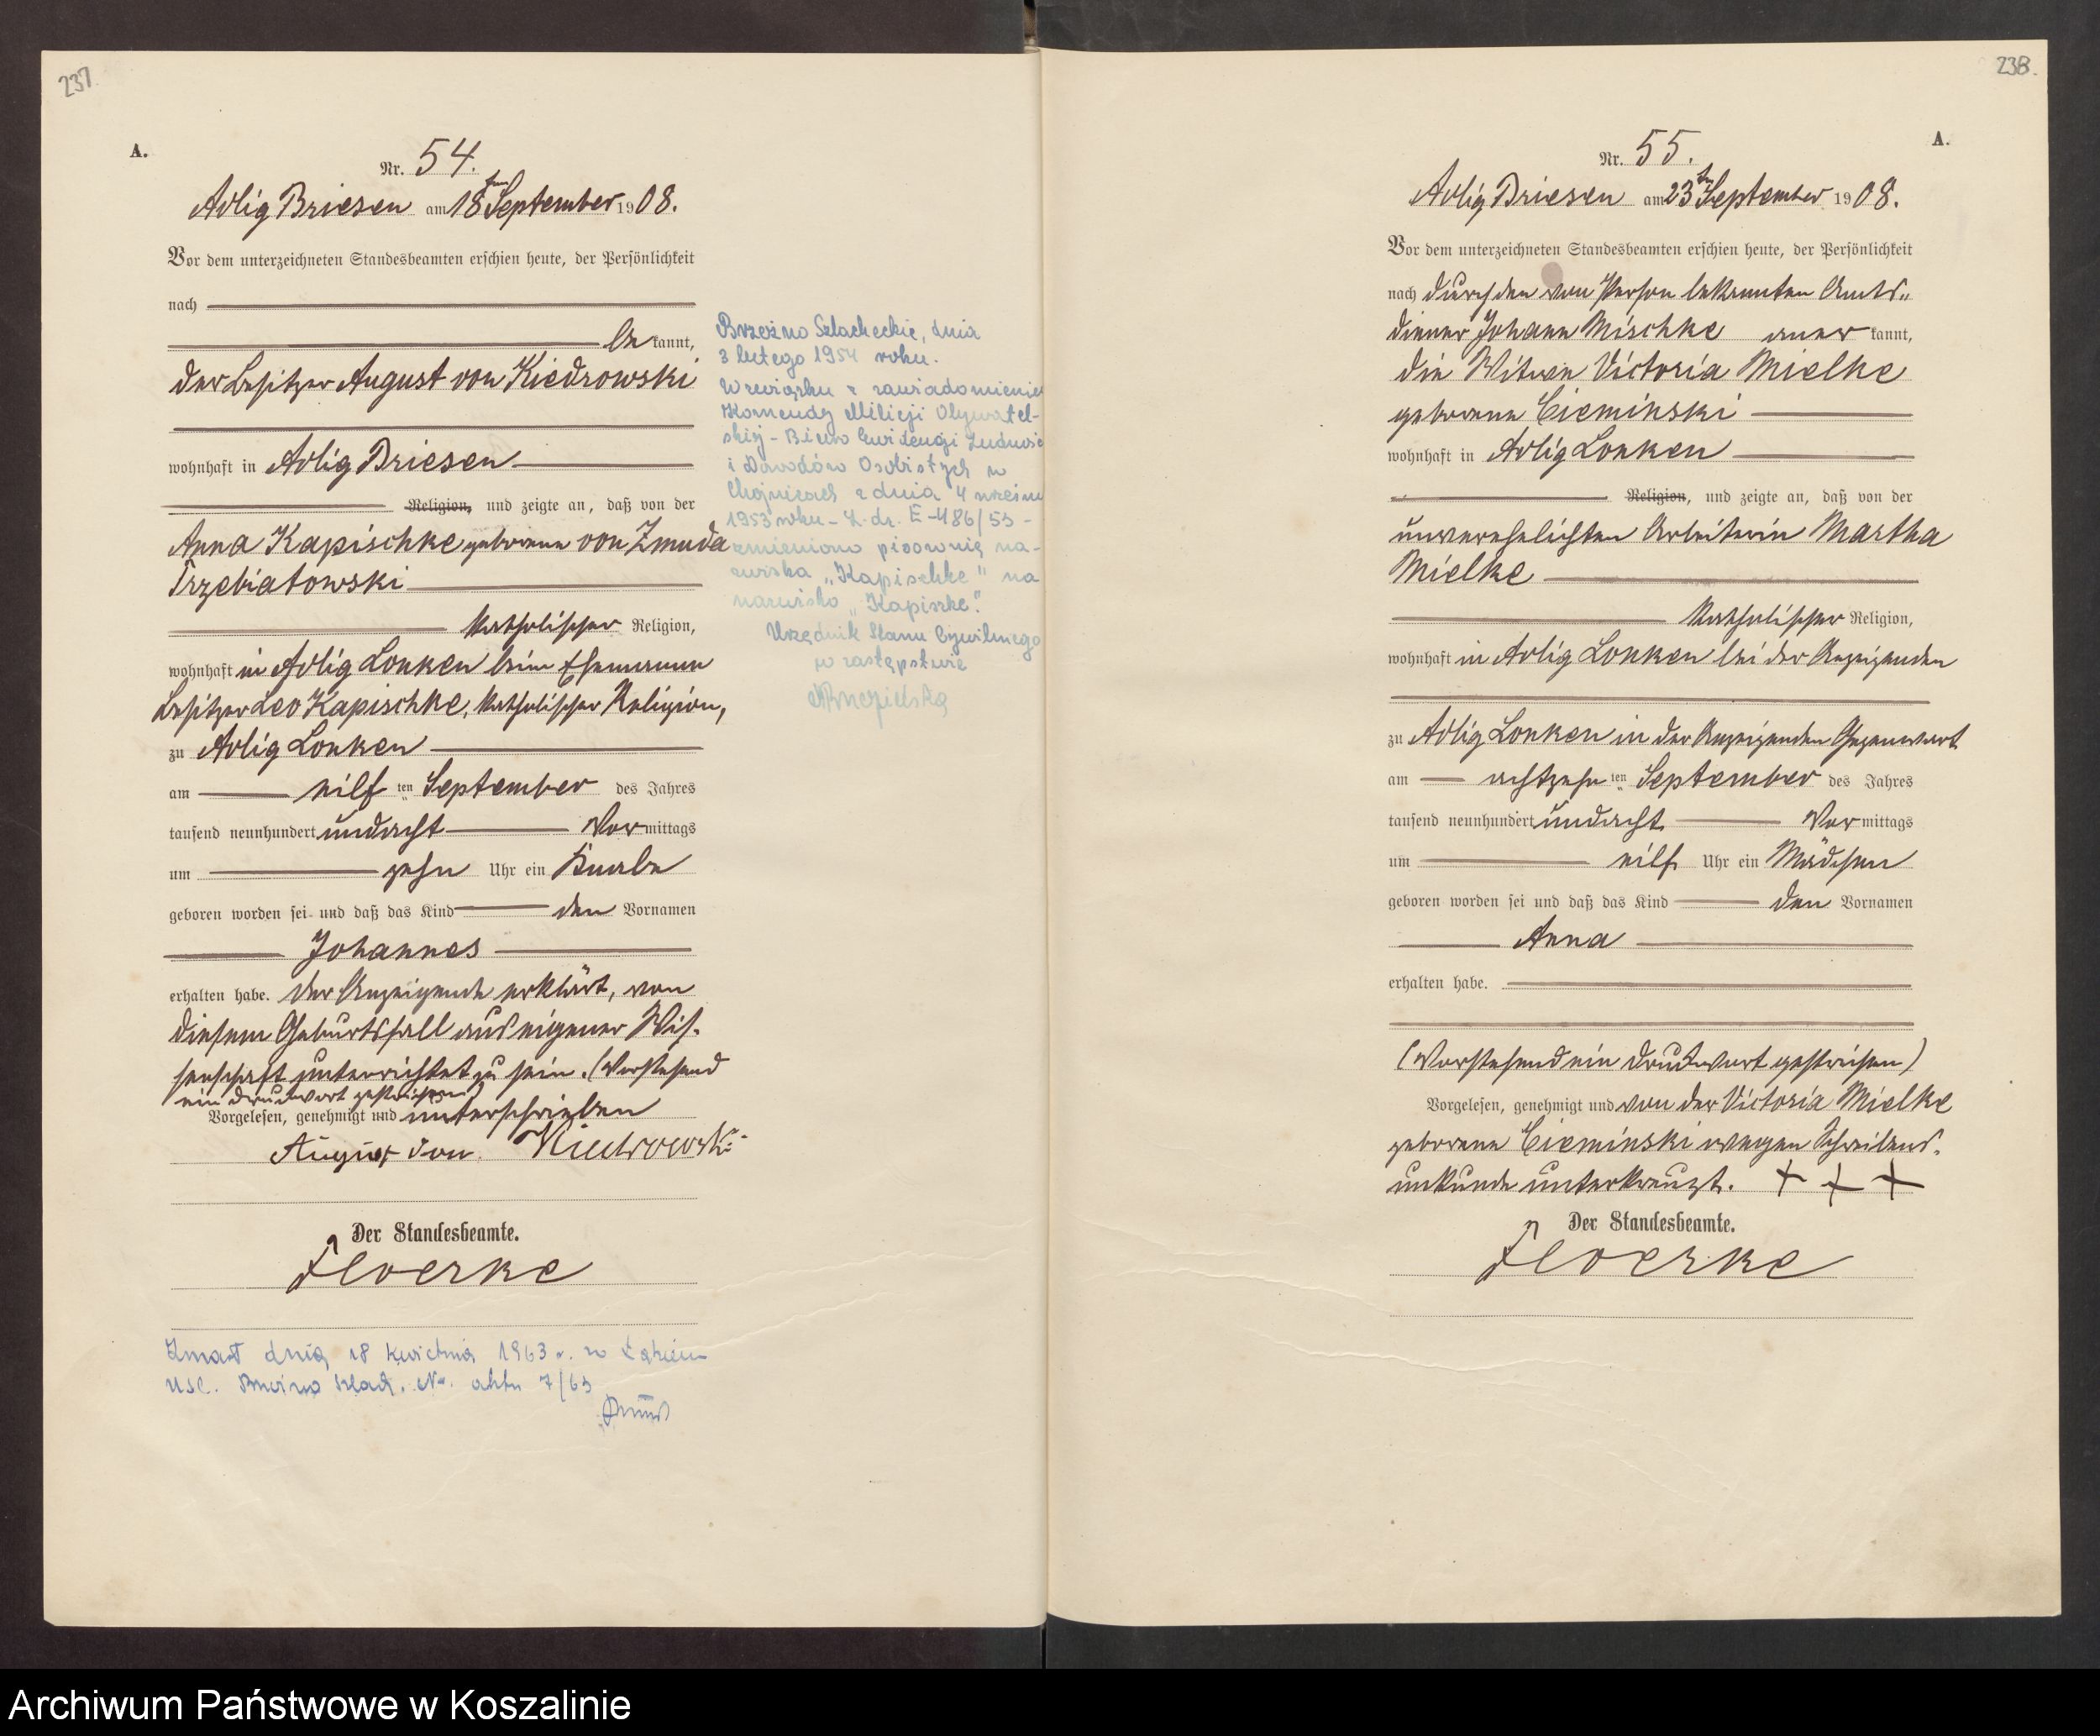 237.
A.
Nr. 54.
Adlig Briesen am 18ten September 1908.
Vor dem unterzeichneten Standesbeamten erschien heute, der Persönlichkeit
nach
bekannt,
der Besitzer August von Kiedrowski
wohnhaft in Adlig Briesen
Religion, und zeigte an, daß von der
Anna Kapischke geborene von Zmuda
Trzebiatowski
katholischer Religion,
wohnhaft in Adlig Lonken beim Ehemann
Besitzer Leo Kapischke, katholischer Religion,
zu Adlig Lonken
am eilften September des Jahres
tausend neunhundert undacht Vormittags
um zehn Uhr ein Knabe
geboren worden sei und daß das Kind den Vornamen
Johannes
erhalten habe. Der Anzeigende erklärt, von
diesem Geburtsfall aus eigener Wis-
senschaft unterrichtet zu sein. (Vorstehend
ein Druckwort gestrichen)
Vorgelesen, genehmigt und unterschrieben
August von Kiedrowski
Der Standesbeamte.
Floerke
Zmarł dnia 18 kwietnia 1963 r. w
USC. Nr. aktu 7/63
Brzeźno Szlacheckie, dnia
3 lutego 1954 roku.
W związku z zawiadomieniem
Komendy Milicji Obywatel-
skiej - Biuro Ewidencji Ludności
i Dowodów Osobistych w
Chojnicach z dnia 4 wrześni
1953 roku - L. dz. E-486/53 -
zmieniono pisownię na-
zwiska „Kapischke" na
nazwisko „Kapiszke".
Urzędnik Stanu Cywilnego
w zastępstwie
238.
A.
Nr. 55.
Adlig Briesen am 23ten September 1908.
Vor dem unterzeichneten Standesbeamten erschien heute, der Persönlichkeit
nach durch den von Person bekannten Amts-
diener Johann Mischke anerkannt,
die Witwe Victoria Mielke
geborene Cieminski
wohnhaft in Adlig Lonken
Religion, und zeigte an, daß von der
unverehelichten Arbeiterin Martha
Mielke
katholischer Religion,
wohnhaft in Adlig Lonken bei der Anzeigenden
zu Adlig Lonken in der Anzeigenden Gegenwart
am achtzehnten September des Jahres
tausend neunhundert undacht Vormittags
um eilf Uhr ein Mädchen
geboren worden sei und daß das Kind den Vornamen
Anna
erhalten habe.
(Vorstehend ein Druckwort gestrichen)
Vorgelesen, genehmigt und von der Victoria Mielke
geborene Cieminski wegen Schreibens-
unkunde unterkreuzt. + + +
Der Standesbeamte.
Floerke
Archiwum Państwowe w Koszalinie